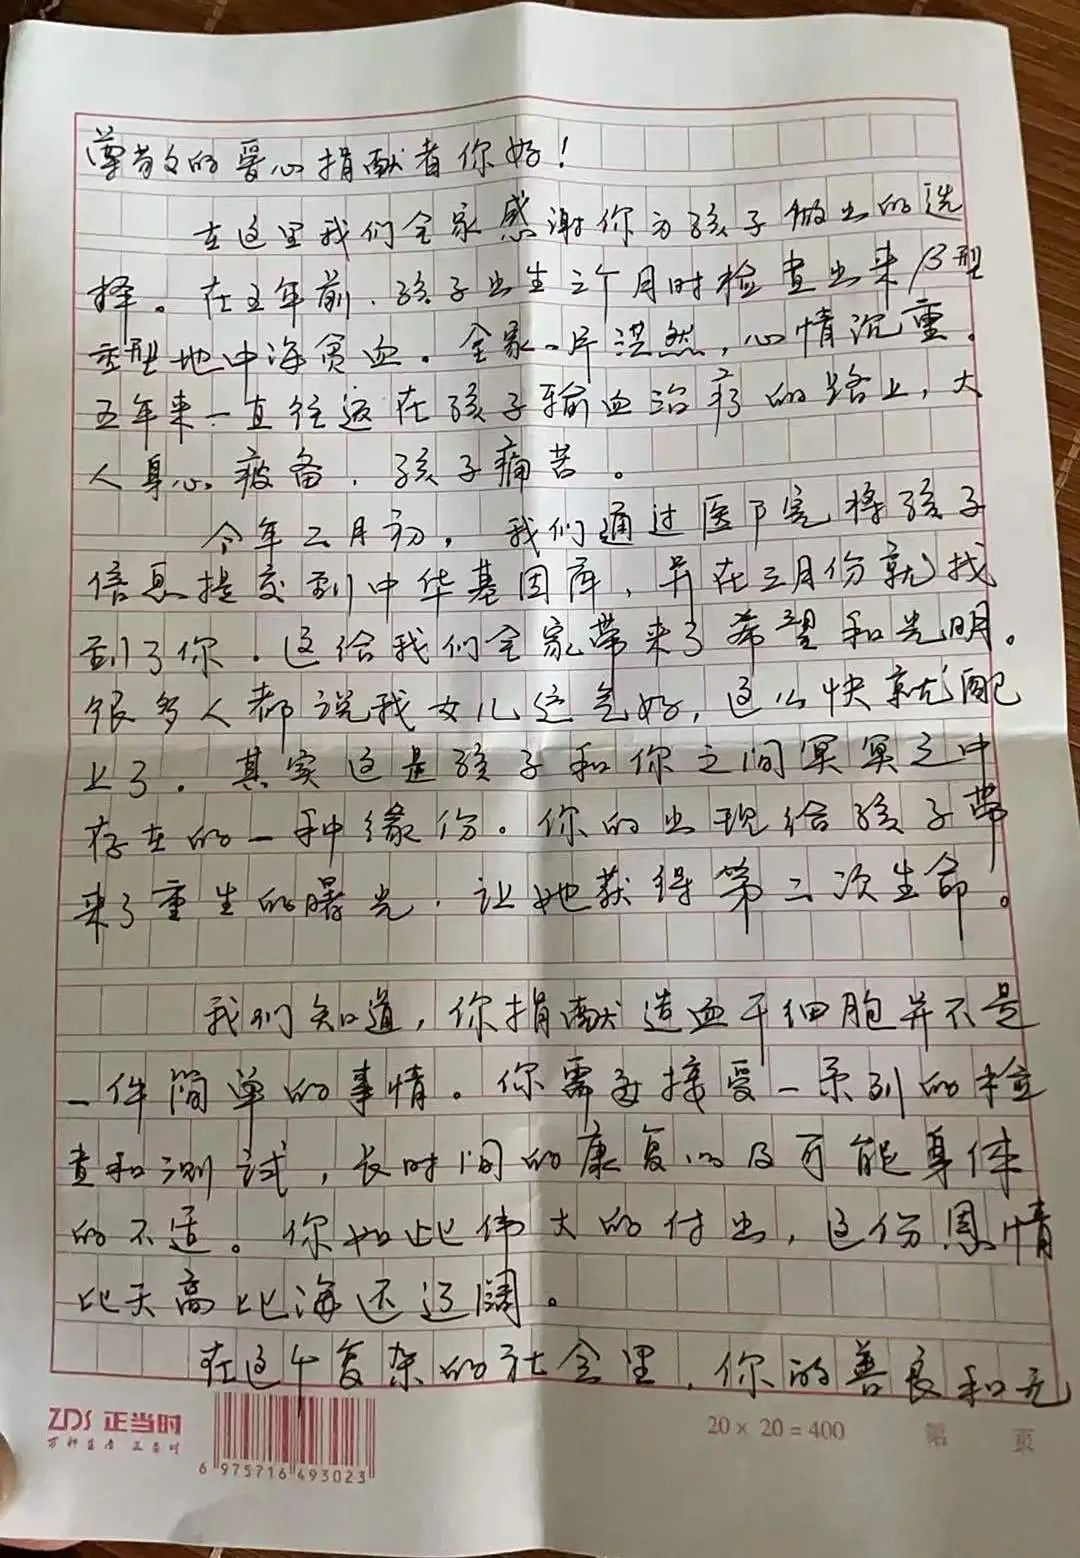 尊敬的爱心捐献者你好！
在这里我们全家感谢你为孩子做出的选
择。在五年前，孩子出生三个月时检查出来β型
重型地中海贫血。全家一片茫然，心情沉重。
五年来一直往返在孩子输血治疗的路上，大
人身心疲备，孩子痛苦。
今年二月初，我们通过医院将孩子
信息提交到中华基因库，并在三月份就找
到了你，这给我们全家带来了希望和光明。
很多人都说我女儿运气好，这么快就配
上了。其实这是孩子和你之间冥冥之中
存在的一种缘份。你的出现给孩子带
来了重生的曙光，让她获得第二次生命。
我们知道，你捐献造血干细胞并不是
一件简单的事情。你需要接受一系列的检
查和测试，长时间的康复以及可能身体
的不适。你如此伟大的付出，这份恩情
比天高比海还辽阔。
在这个复杂的社会里，你的善良和无
ZDS 正当时
20×20=400 第 页
6 975716 493023